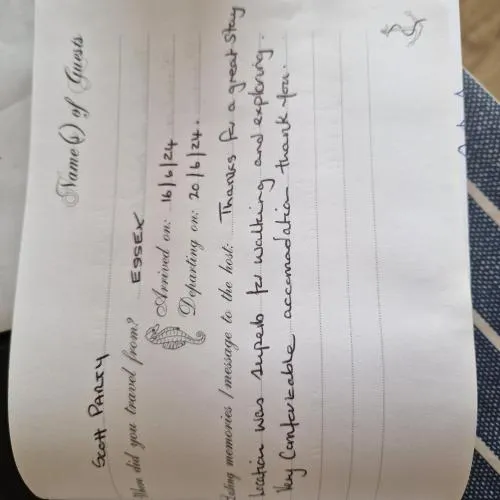 Name(s) of Guests
SCOTT PARTY
When did you travel from? ESSEX
Arrived on: 16/6/24
Departing on: 20/6/24.
Lasting memories / message to the host: Thanks for a great stay
Location was superb for walking and exploring.
Very Comfortable accomadation thank you.